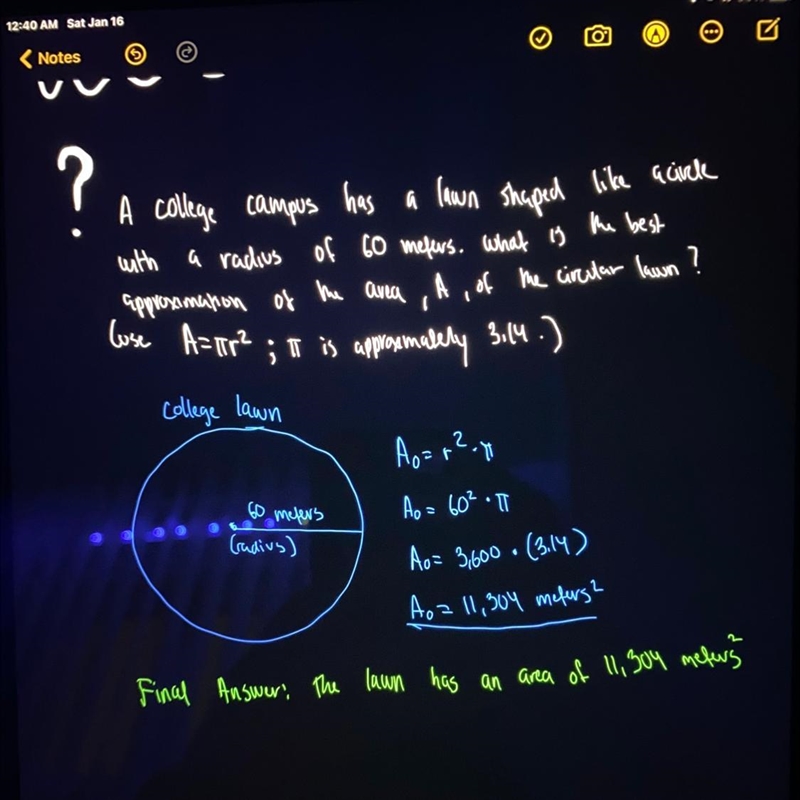 12:40 AM Sat Jan 16
Notes
?
A college campus has a lawn shaped like a circle
with a radius of 60 meters. What is the best
approximation of the area, A, of the circular lawn?
(use A=πr²; π is approximately 3.14.)
college lawn
60 meters
(radius)
A₀= r²·π
A₀= 60²·π
A₀= 3,600·(3.14)
A₀= 11,304 meters²
Final Answer: The lawn has an area of 11,304 meters²